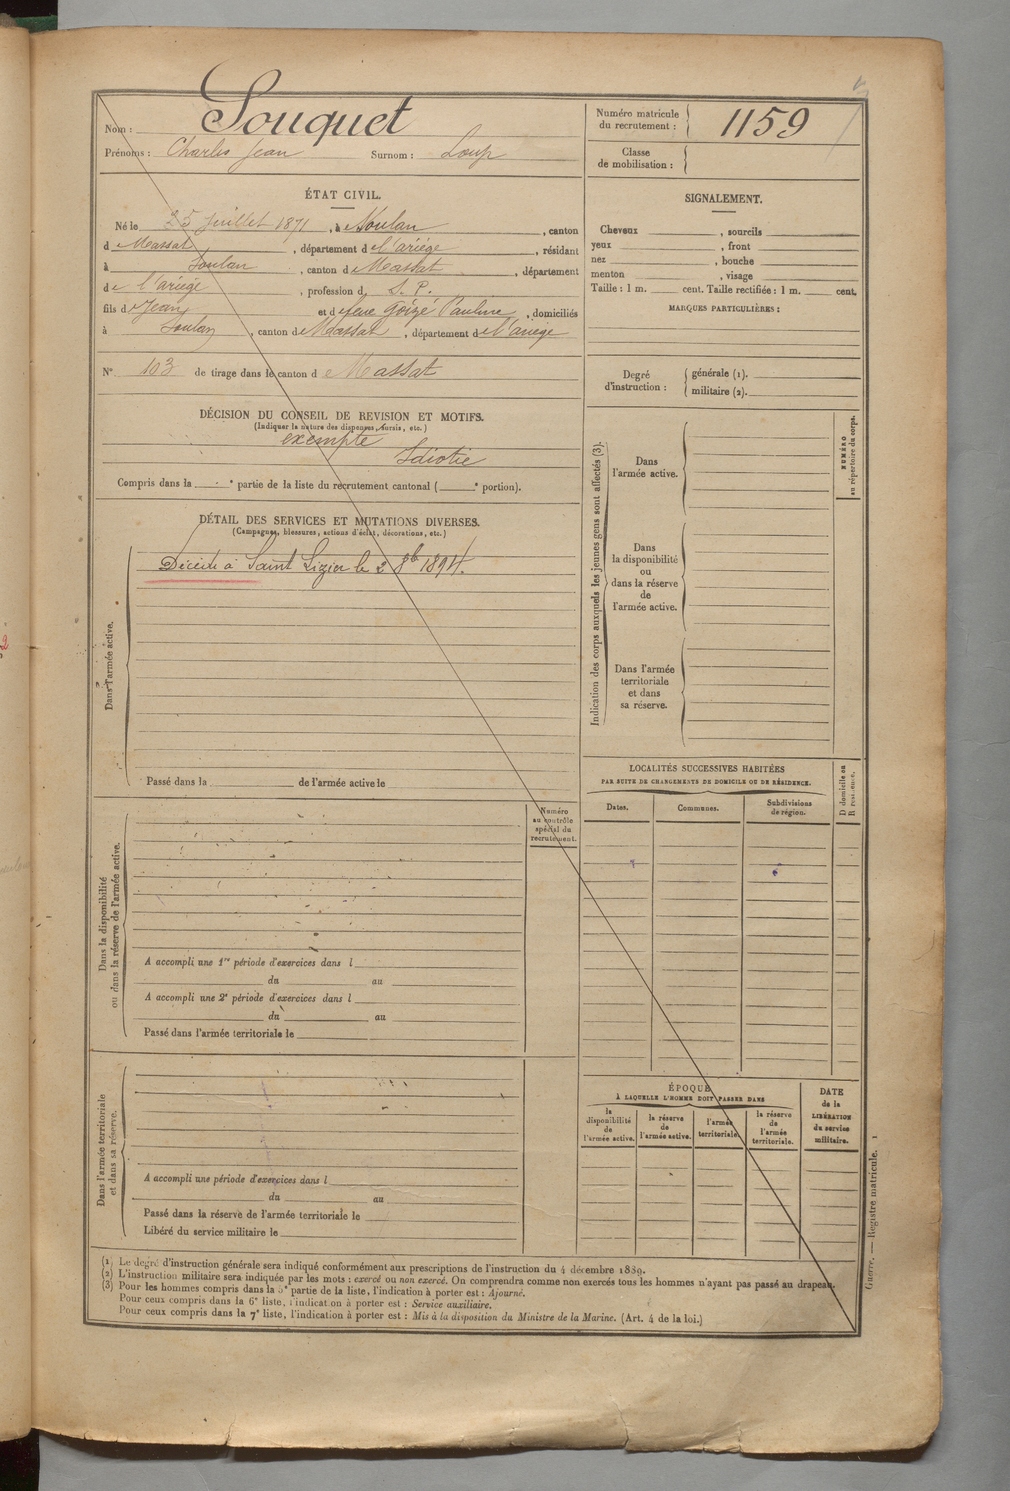 Nom : Souquet
Prénoms : Charles Jean Surnom : Loup
Numéro matricule
du recrutement : 1159
Classe
de mobilisation :
ÉTAT CIVIL.
Né le 25 Juillet 1871, à Soulan, canton
de Massat, département de l'ariège, résidant
à Soulan, canton de Massat, département
de l'ariège, profession d S. P.
fils de Jean et de feue Goizé Pauline, domiciliés
à Soulan, canton de Massat, département de l'ariège
N° 103 de tirage dans le canton de Massat
DÉCISION DU CONSEIL DE REVISION ET MOTIFS.
(Indiquer la nature des dispenses, sursis, etc.)
exempté
Idiotie
Compris dans la e partie de la liste du recrutement cantonal ( e portion).
DÉTAIL DES SERVICES ET MUTATIONS DIVERSES.
(Campagnes, blessures, actions d'éclat, décorations, etc.)
Dans l'armée active.
Décédé à Saint Lizier le 2 8bre 1894.
Passé dans la de l'armée active le
Numéro
au contrôle
spécial du
recrutement.
Dans la disponibilité
ou dans la réserve de l'armée active.
A accompli une 1re période d'exercices dans l
du au
A accompli une 2e période d'exercices dans l
du au
Passé dans l'armée territoriale le
Dans l'armée territoriale
et dans sa réserve.
A accompli une période d'exercices dans l
du au
Passé dans la réserve de l'armée territoriale le
Libéré du service militaire le
SIGNALEMENT.
Cheveux , sourcils
yeux , front
nez , bouche
menton , visage
Taille : 1 m. cent. Taille rectifiée : 1 m. cent.
MARQUES PARTICULIÈRES :
Degré
d'instruction :
générale (1).
militaire (2).
Indication des corps auxquels les jeunes gens sont affectés (3).
NUMÉRO
au répertoire du corps.
Dans
l'armée active.
Dans
la disponibilité
ou
dans la réserve
de
l'armée active.
Dans l'armée
territoriale
et dans
sa réserve.
LOCALITÉS SUCCESSIVES HABITÉES
PAR SUITE DE CHANGEMENTS DE DOMICILE OU DE RÉSIDENCE.
D domicile ou
R résidence.
Dates. Communes. Subdivisions
de région.
ÉPOQUE
À LAQUELLE L'HOMME DOIT PASSER DANS
la
disponibilité
de
l'armée active.
la réserve
de
l'armée active.
l'armée
territoriale.
la réserve
de
l'armée
territoriale.
DATE
de la
LIBÉRATION
du service
militaire.
Guerre. — Registre matricule. 1
(1) Le degré d'instruction générale sera indiqué conformément aux prescriptions de l'instruction du 4 décembre 1889.
(2) L'instruction militaire sera indiquée par les mots : exercé ou non exercé. On comprendra comme non exercés tous les hommes n'ayant pas passé au drapeau.
(3) Pour les hommes compris dans la 5e partie de la liste, l'indication à porter est : Ajourné.
Pour ceux compris dans la 6e liste, l'indication à porter est : Service auxiliaire.
Pour ceux compris dans la 7e liste, l'indication à porter est : Mis à la disposition du Ministre de la Marine. (Art. 4 de la loi.)